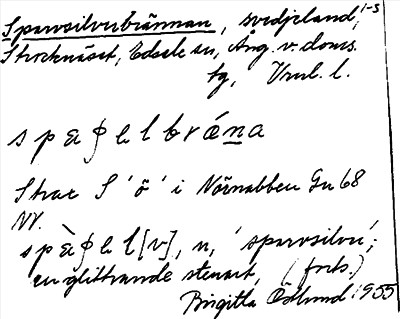 Sparvsilverbrännan, svedjeland, 1-s
Storknäset, Edsele sn, Ång. v. doms.
tg, Vnrl. l.
spaꞵelbrǻna
Strax S 'ö' i Nörnabben Gu 68
NV.
spàꞵel[v], n, 'sparvsilver';
en glittrande stenart, (forts.)
Birgitta Östlund 1955